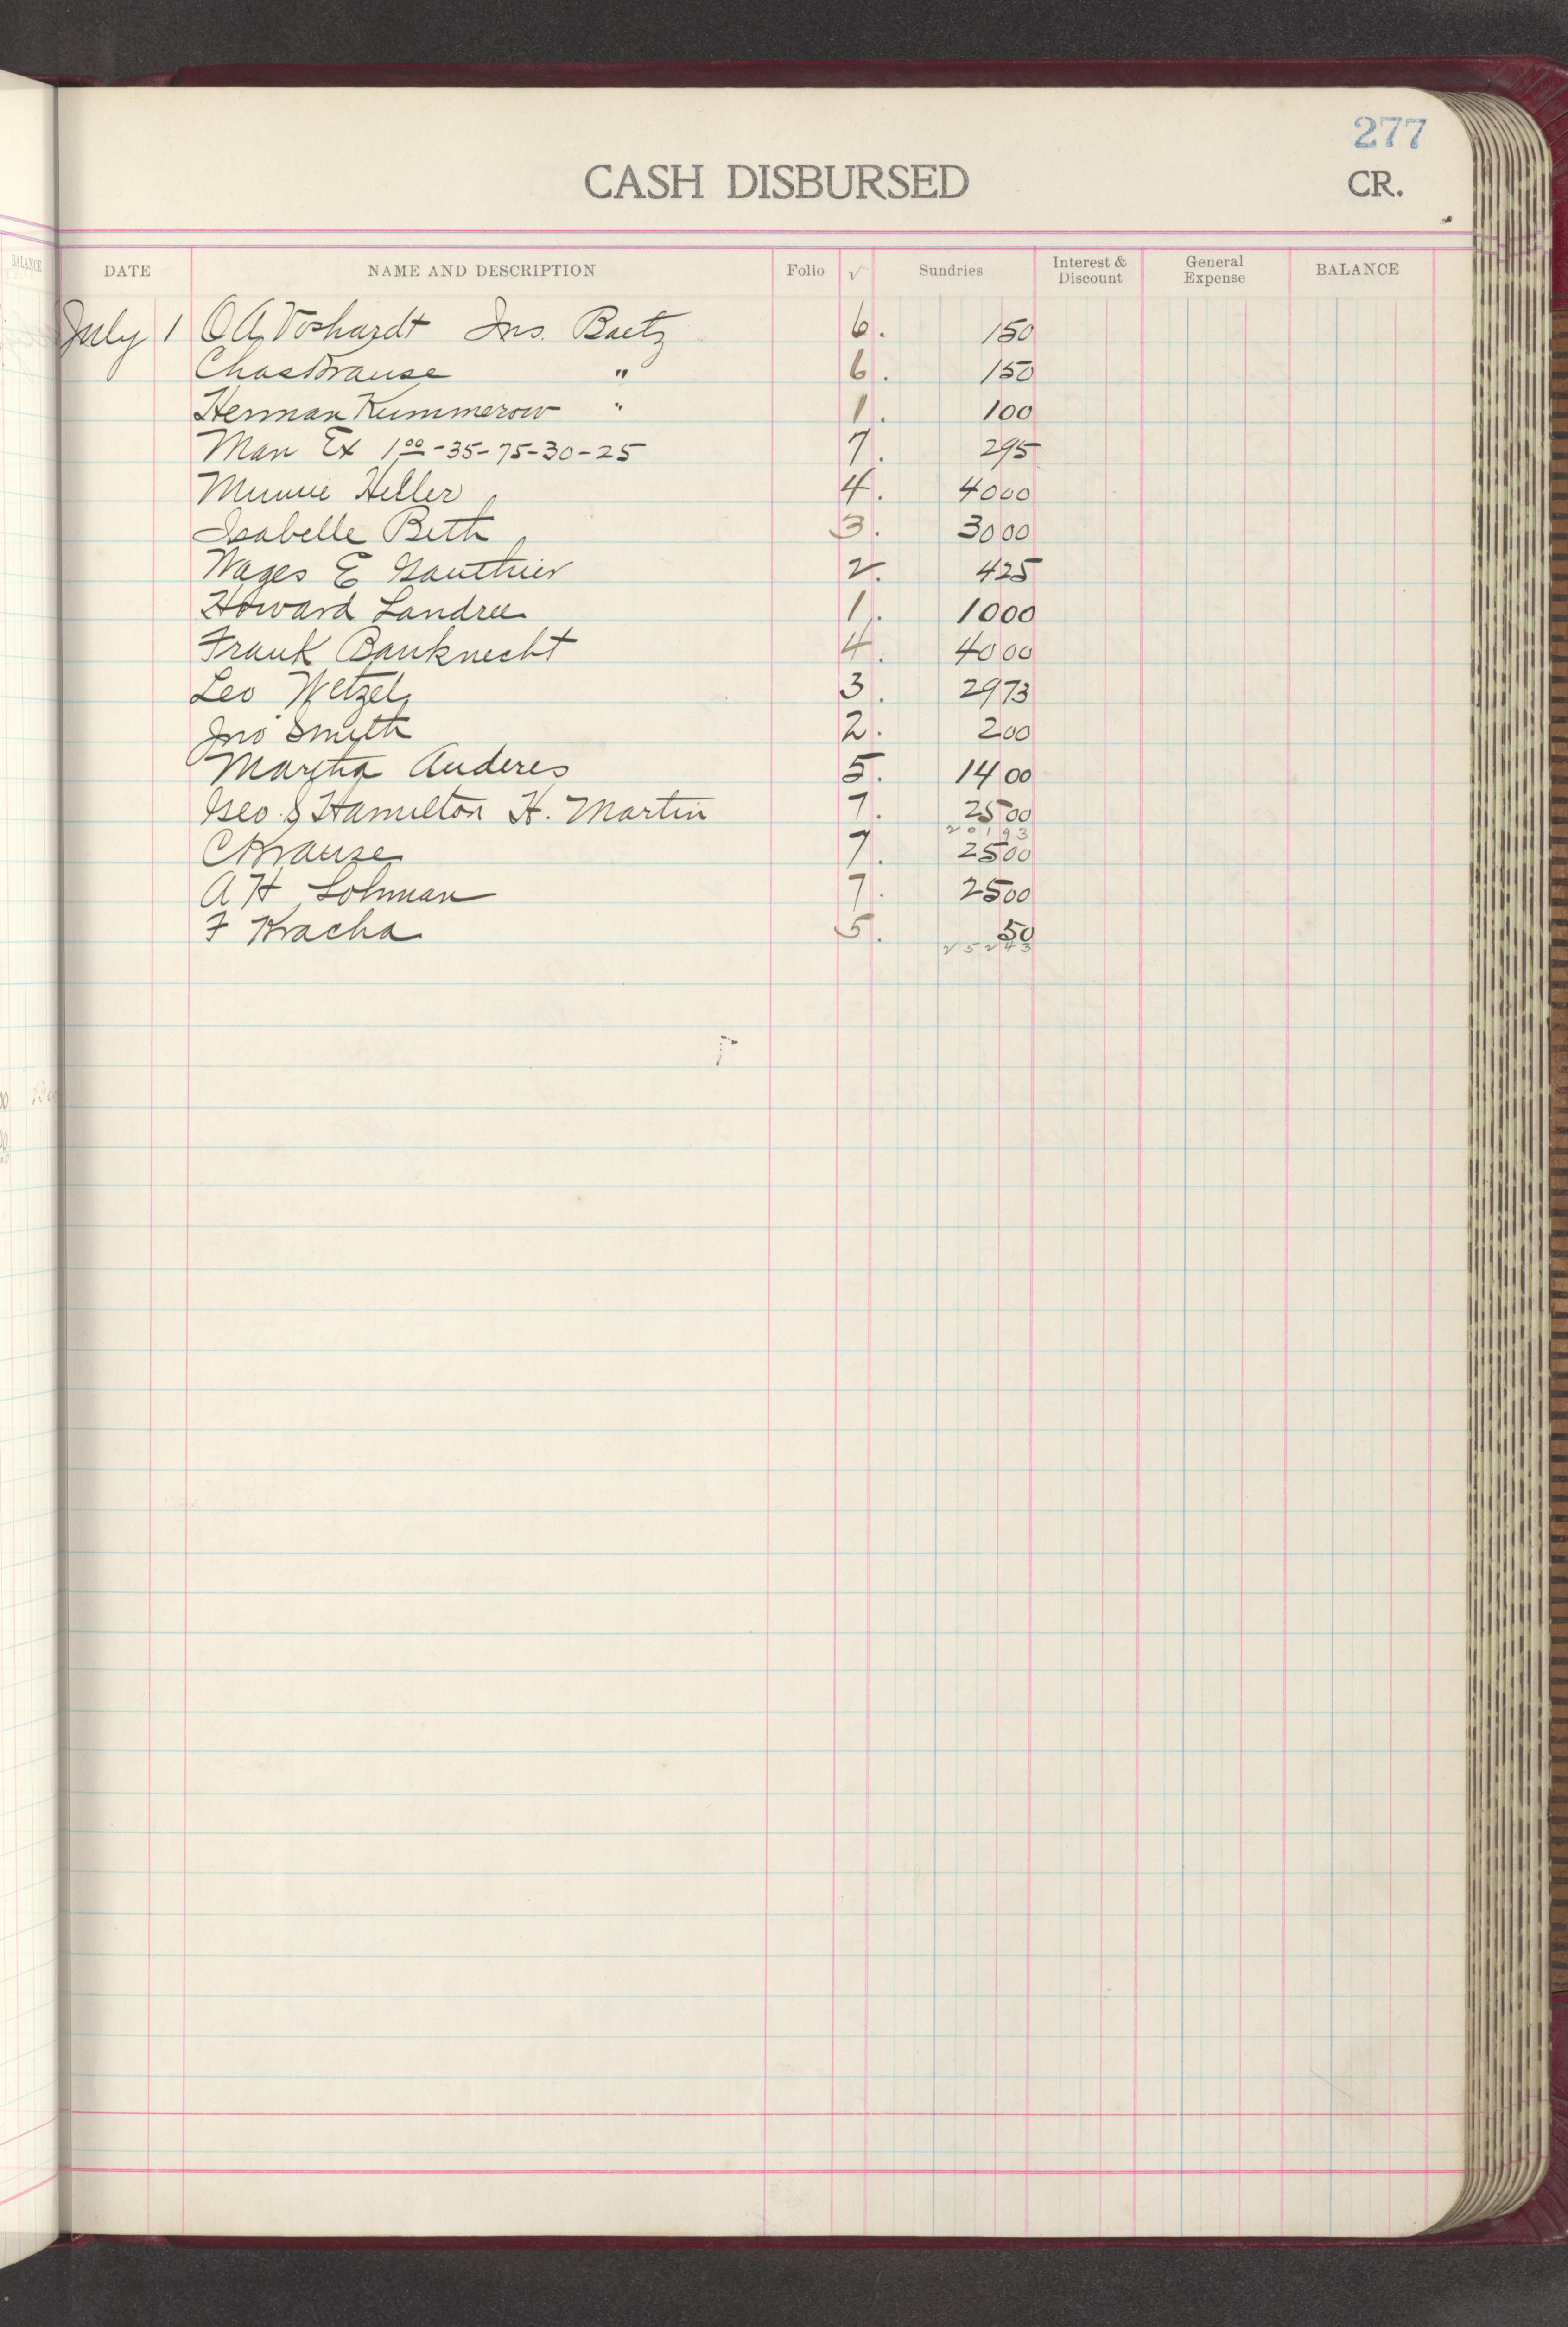 277
CASH DISBURSED CR.
BALANCE
DATE NAME AND DESCRIPTION Folio √ Sundries Interest & Discount General Expense BALANCE
July 1 O A Voshardt Ins. Baetz 6. 150
Chas Krause " 6. 150
Herman Kummerow " 1. 100
Man Ex 1 00 -35-75-30-25 7. 295
Minnie Heller 4. 4000
Isabelle Beth 3. 3000
Wages E Gauthier 2. 425
Howard Landree 1. 1000
Frank Bauknecht 4. 4000
Leo Wetzel 3. 2973
Jno Smith 2. 200
Martha Anderes 5. 1400
Geo S Hamilton H. Martin 7. 2500
20193
C Krause 7. 2500
A H Lohman 7. 2500
F Kracha 5. 50
25243